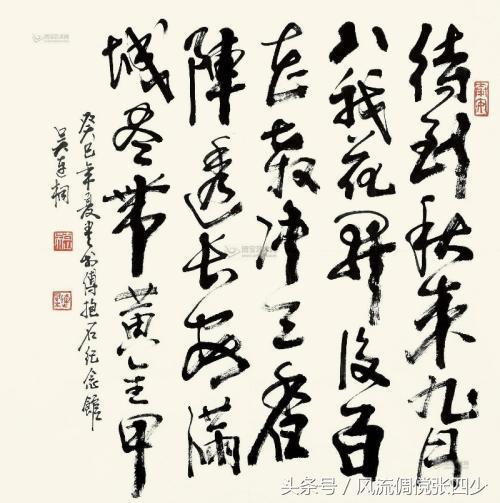 待到秋来九月
八我花開後百
花殺冲天香
陣透长安滿
城尽带黄金甲
癸巳年夏書於傅抱石纪念館
吴连桐
头条号 / 风流倜傥张四少